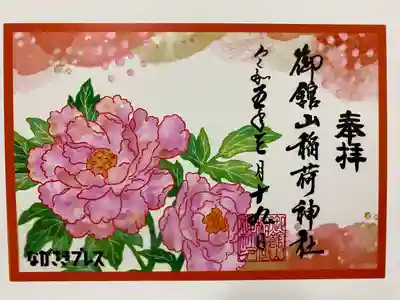 奉拝
御舘山稲荷神社
令和五年三月十九日
ながさきプレス